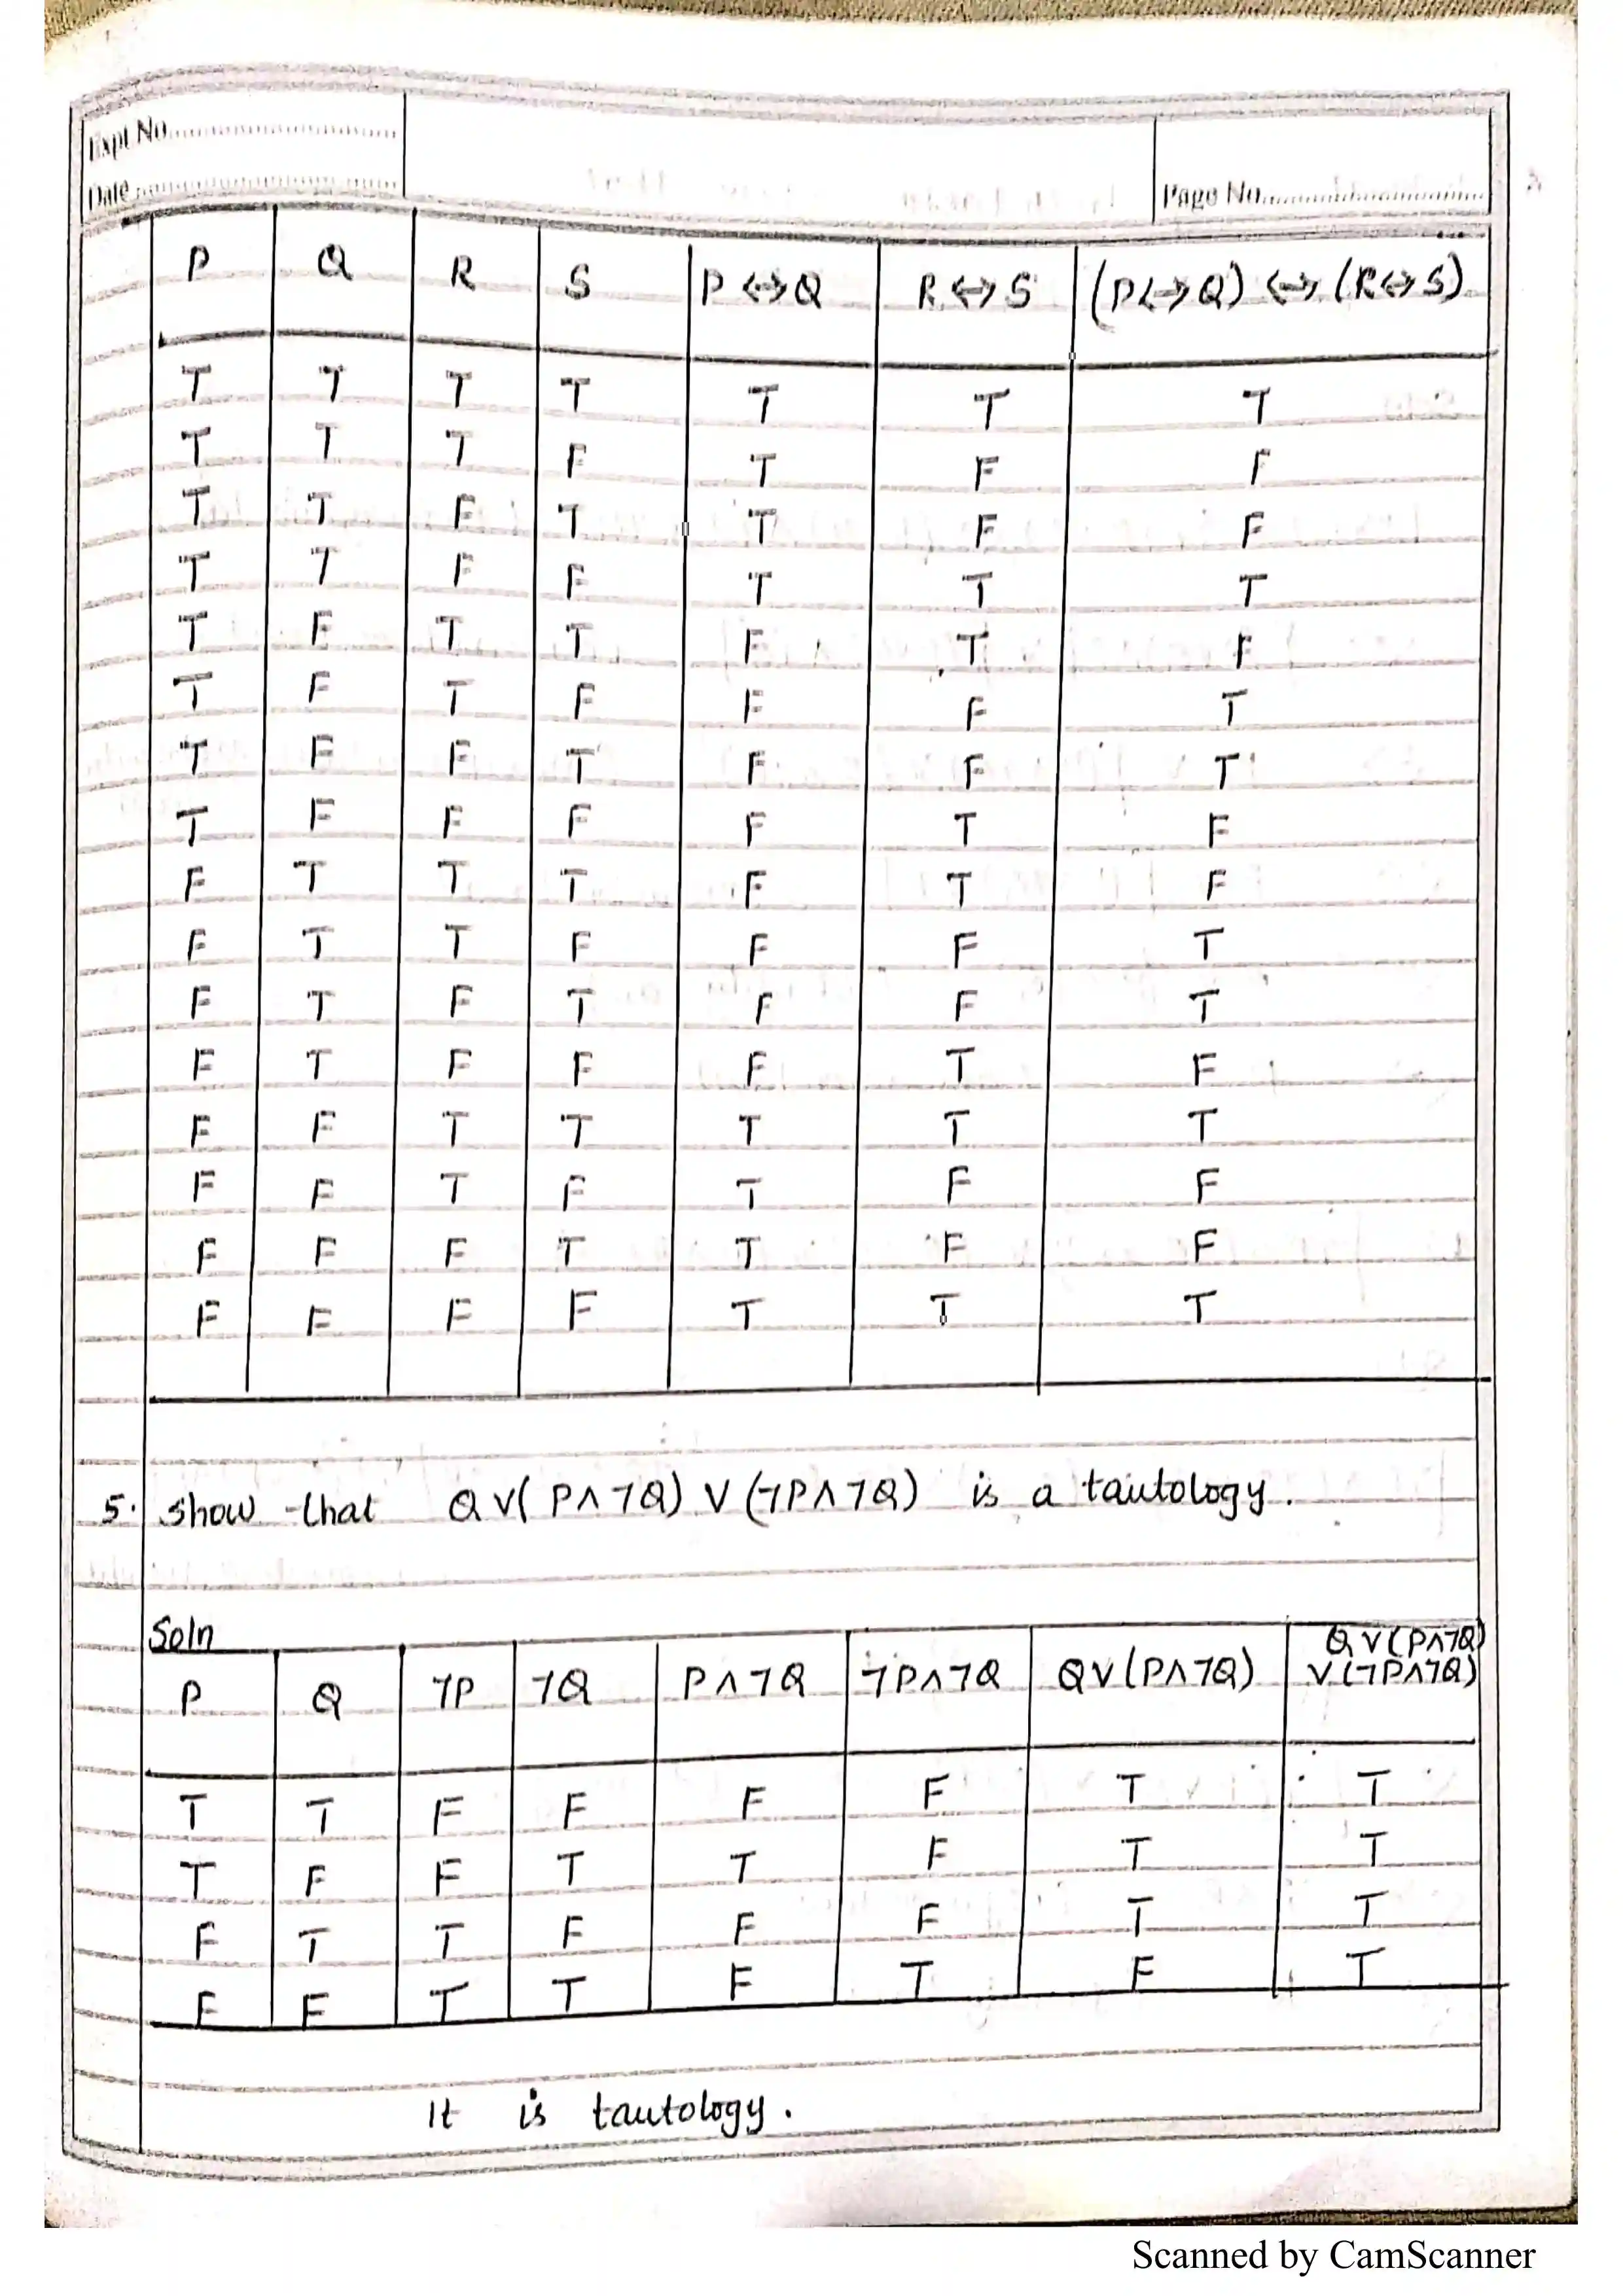 Expt No.
Date
Page No.
P Q R S P ↔ Q R ↔ S (P↔Q) ↔ (R↔S)
T T T T T T T
T T T F T F F
T T F T T F F
T T F F T T T
T F T T F T F
T F T F F F T
T F F T F F T
T F F F F T F
F T T T F T F
F T T F F F T
F T F T F F T
F T F F F T F
F F T T T T T
F F T F T F F
F F F T T F F
F F F F T T T
5. Show that Q V( P∧¬Q) V (¬P∧¬Q) is a tautology.
Soln
P Q ¬P ¬Q P∧¬Q ¬P∧¬Q QV(P∧¬Q) Q V(P∧¬Q) V(¬P∧¬Q)
T T F F F F T T
T F F T T F T T
F T T F F F T T
F F T T F T F T
It is tautology.
Scanned by CamScanner